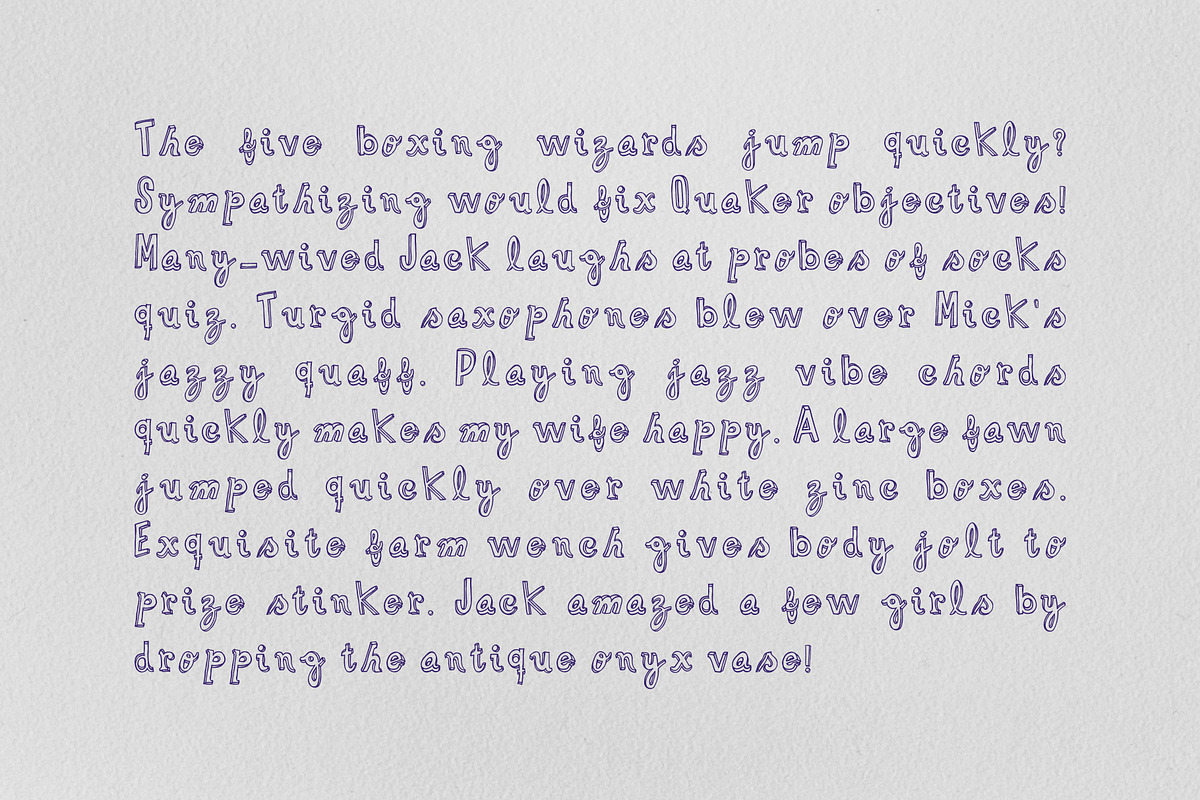 The five boxing wizards jump quickly?
Sympathizing would fix Quaker objectives!
Many-wived Jack laughs at probes of socks
quiz. Turgid saxophones blew over Mick's
jazzy quaff. Playing jazz vibe chords
quickly makes my wife happy. A large fawn
jumped quickly over white zinc boxes.
Exquisite farm wench gives body jolt to
prize stinker. Jack amazed a few girls by
dropping the antique onyx vase!